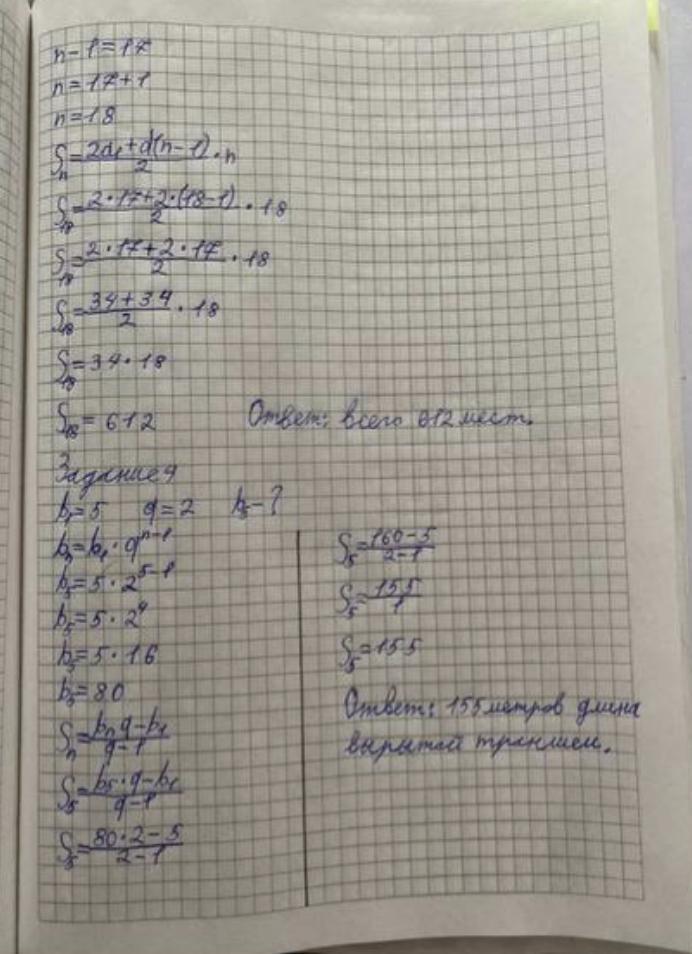 n-1=17
n=17+1
n=18
Sₙ=(2a₁+d(n-1))/2·n
S₁₈=(2·17+2·(18-1))/2·18
S₁₈=(2·17+2·17)/2·18
S₁₈=(34+34)/2·18
S₁₈=34·18
S₁₈=612
Ответ: всего 612 мест.
Задание 4
b₁=5 q=2 b₅-?
bₙ=b₁·qⁿ⁻¹
b₅=5·2⁵⁻¹
b₅=5·2⁴
b₅=5·16
b₅=80
Sₙ=(bₙq-b₁)/(q-1)
S₅=(b₅·q-b₁)/(q-1)
S₅=(80·2-5)/(2-1)
S₅=(160-5)/(2-1)
S₅=155/1
S₅=155
Ответ: 155 метров длина
вырытой траншеи.